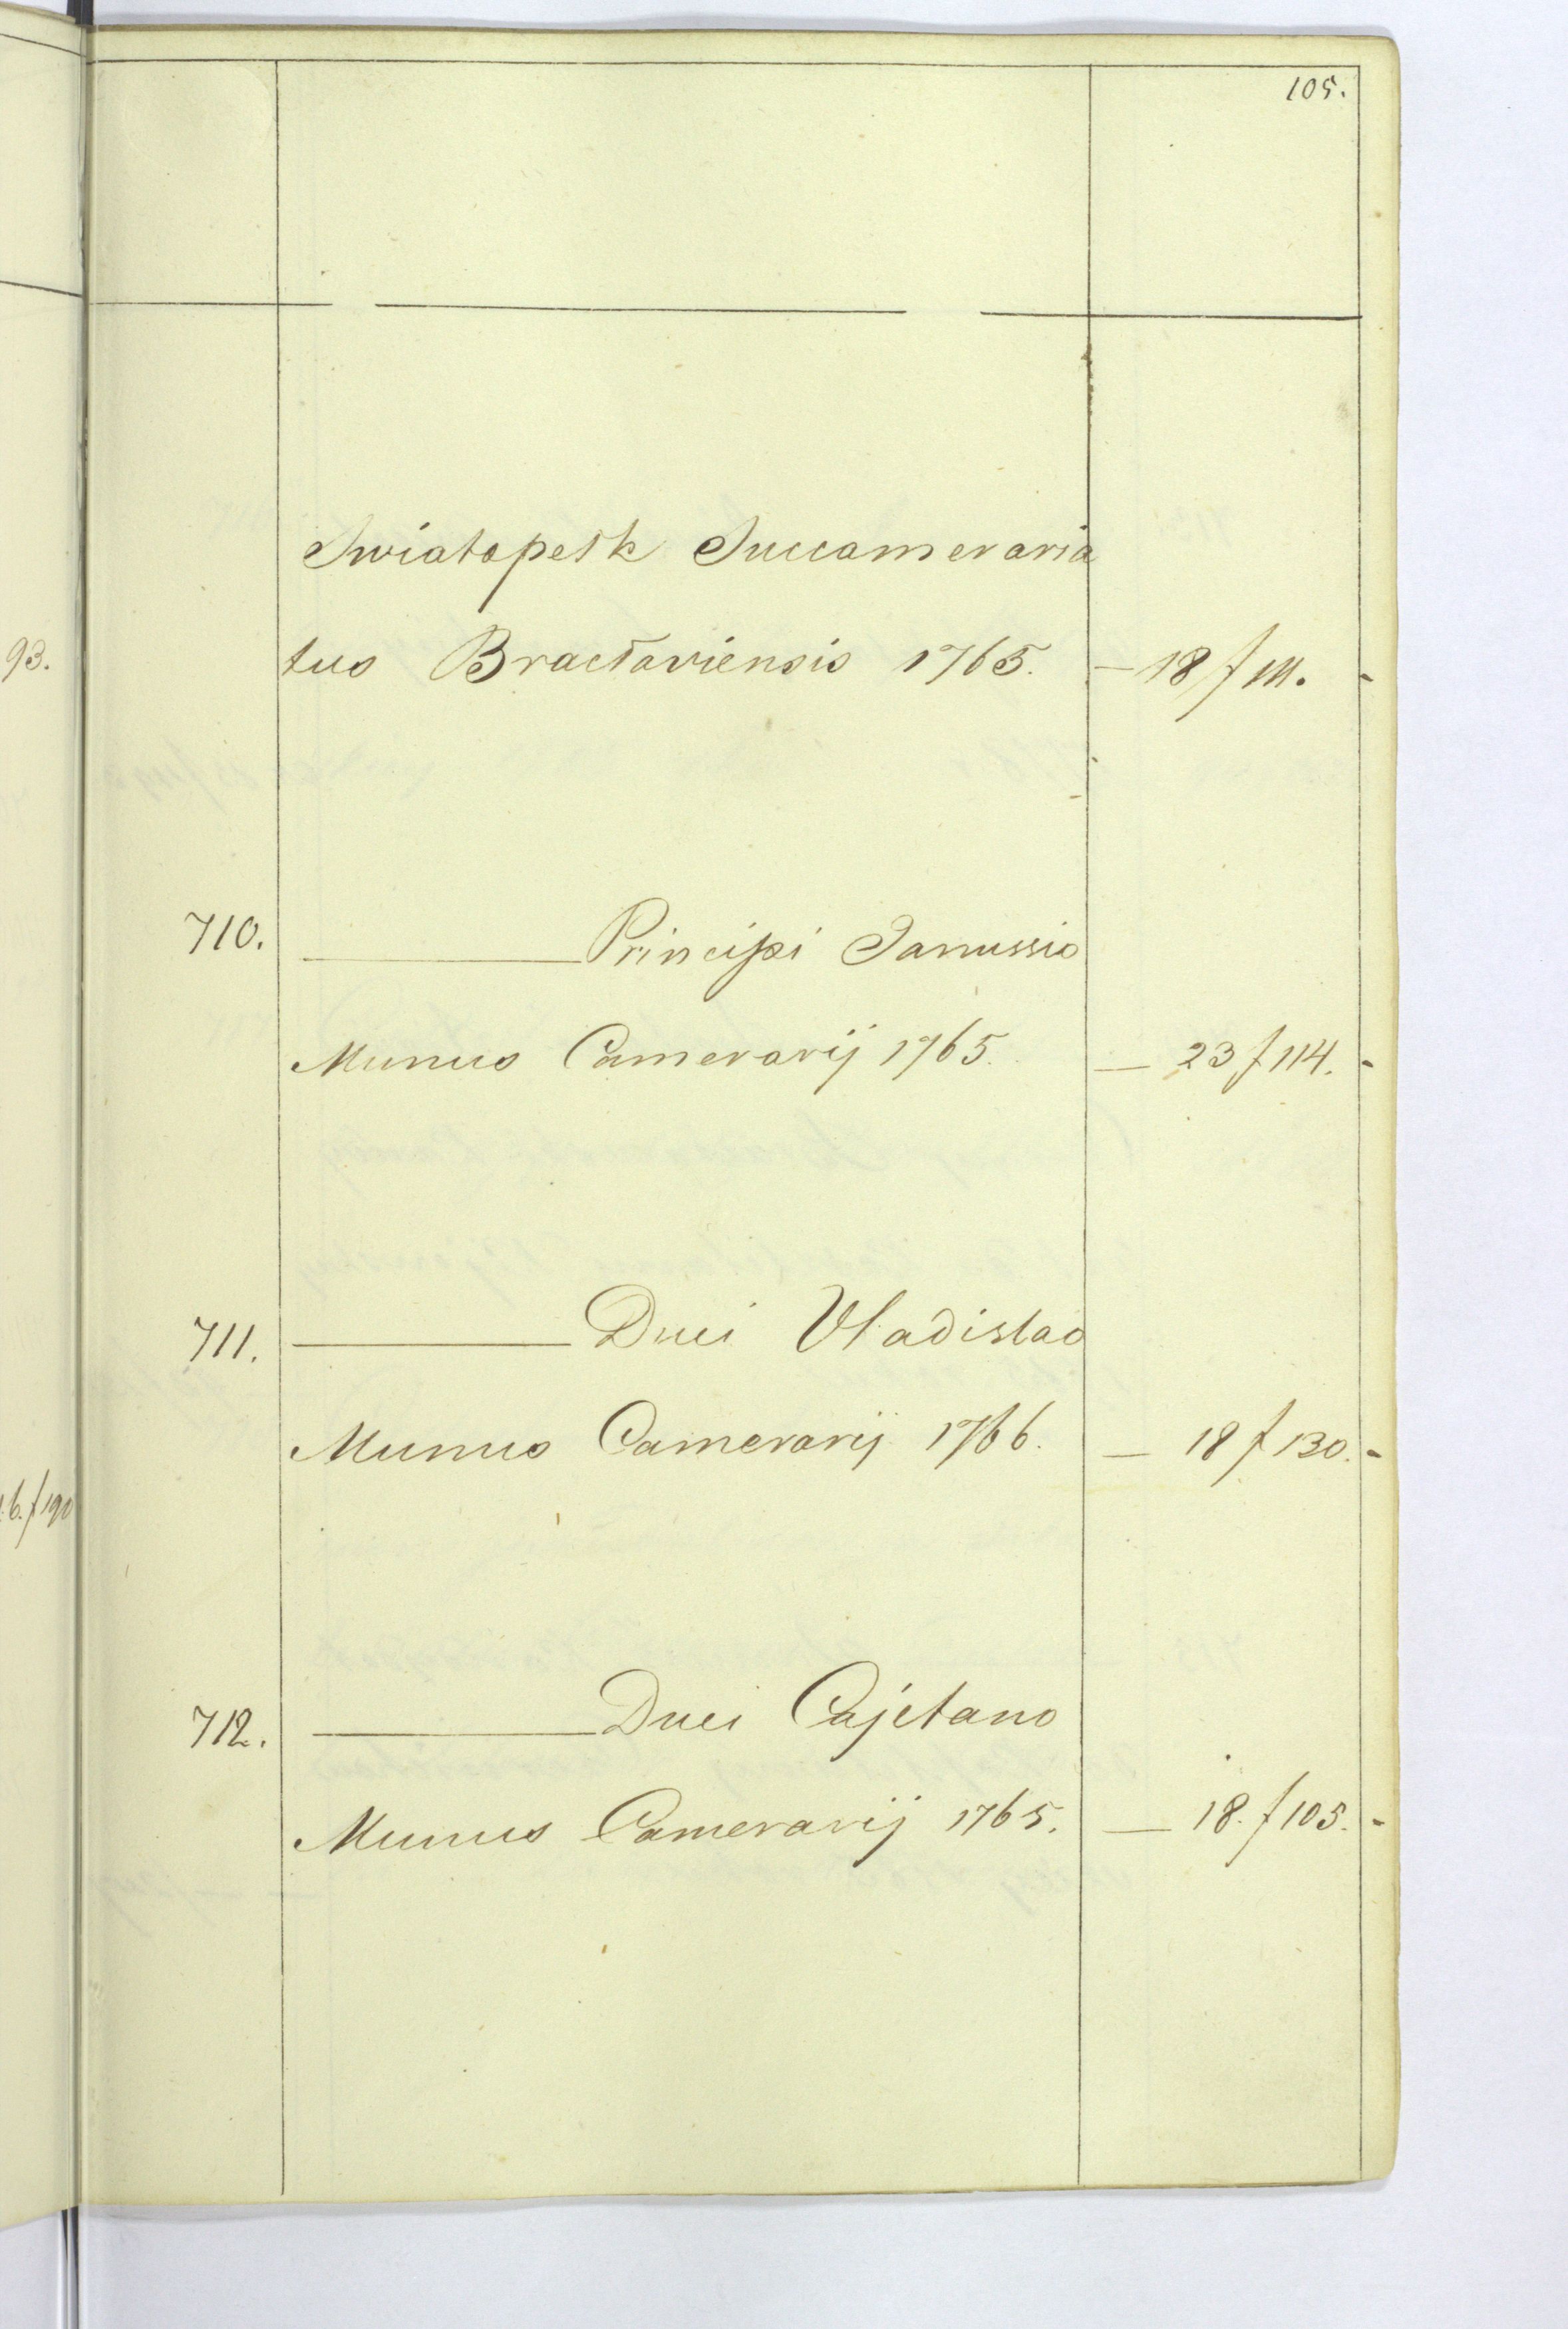 105.
Swiatopełk Succameraria
tus Bracłaviensis 1765. — 18 f 111.
93.
710. ——— Principi Janussio
Munus Camerarij 1765. — 23 f 114.
711. ——— Duci Vladislao
Munus Camerarij 1766. — 18 f 130.
6. f 190
712. ——— Duci Cajetano
Munus Camerarij 1765. — 18. f 105.